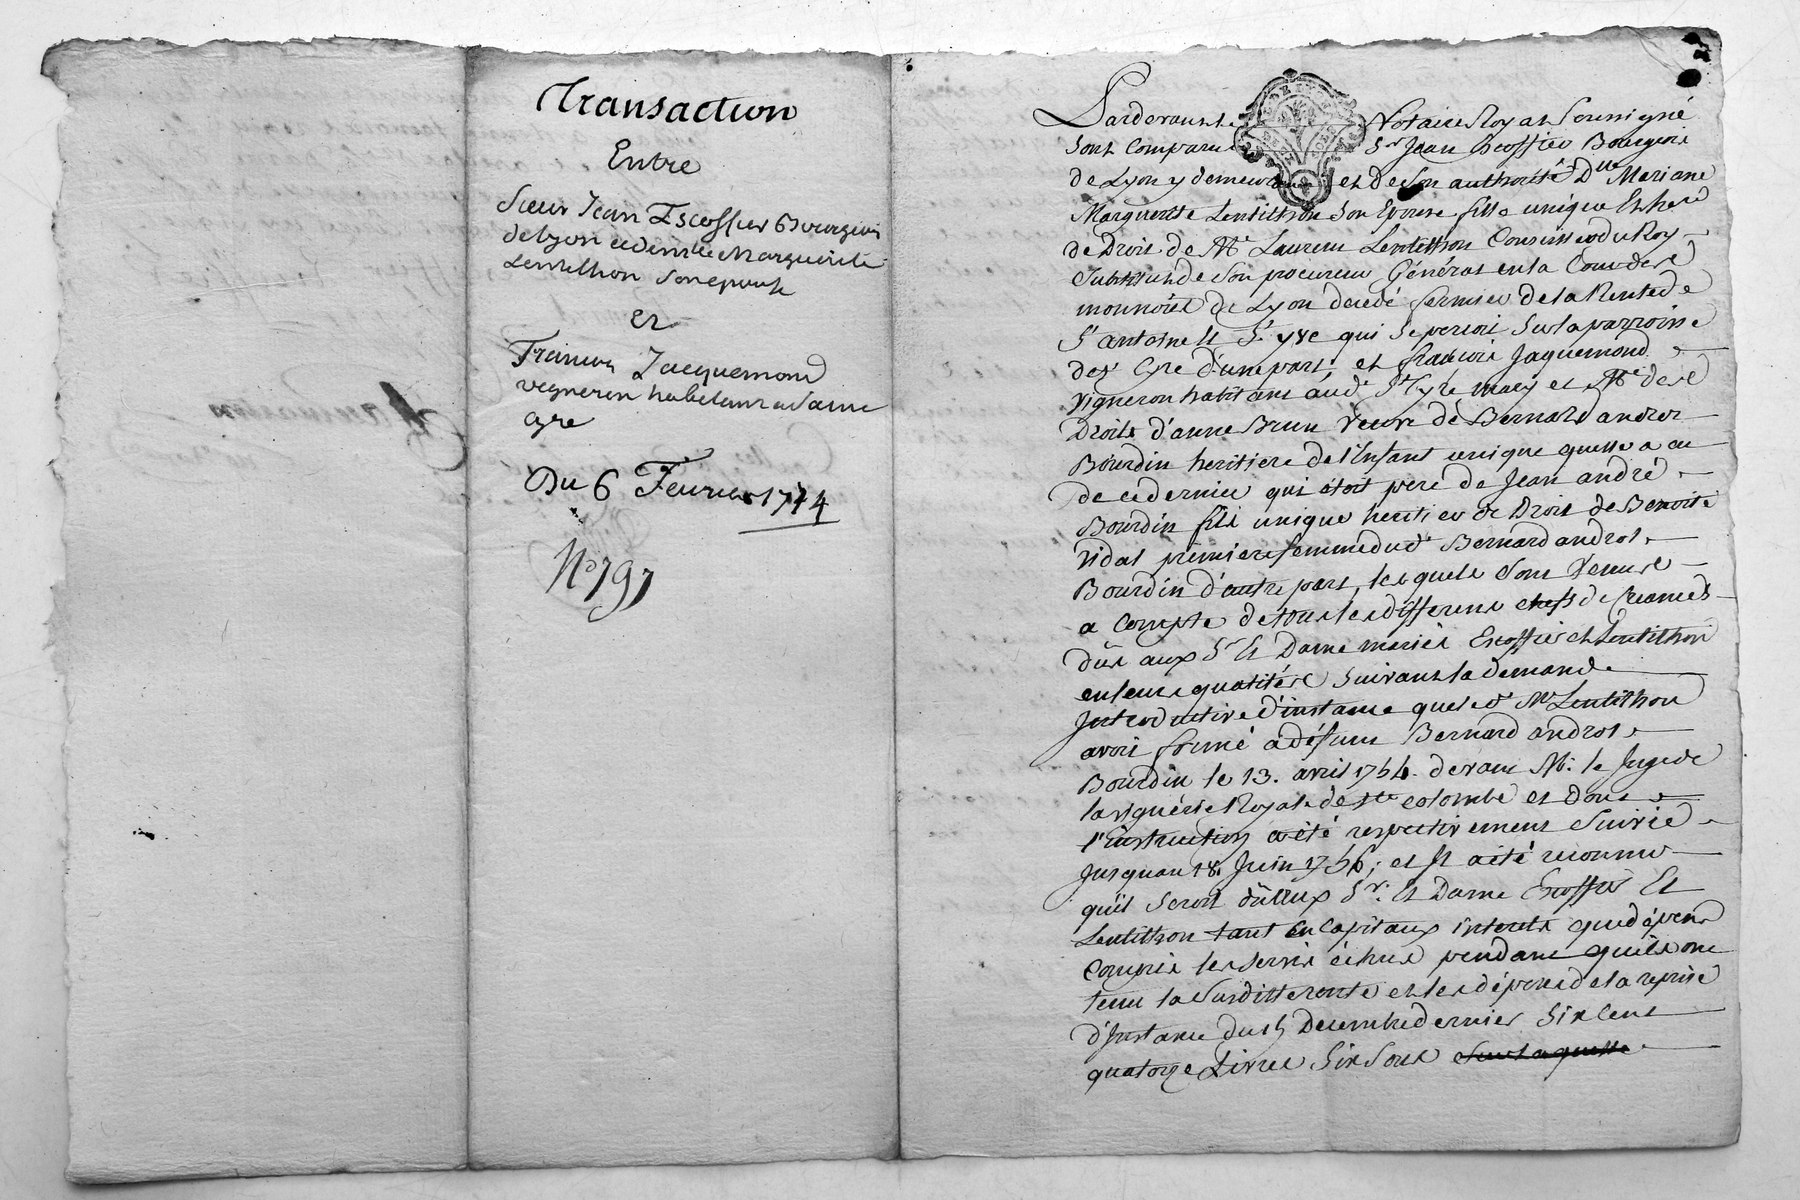 Transaction
Entre
Sieur Jean Escoffier Bourgeois
de Lyon et demlle Marguerite
Lentillon son epouse
Et
François Jacquemond
vigneron habitant a Sainte
Cyre
Du 6 Fevrier 1774
No 797
Pardevant le Notaire Royal Soussigné
Sont Comparus Sr Jean Escoffier Bourgeois
de Lyon y demeurant et de son authorité Dlle Mariane
Marguerite Lentilhon Son Epouse fille unique Et here
de Droit de Me Laurent Lentilhon Conseiller du Roy
Substitut de Son procureur Général en la Cour des
monnoies de Lyon décédé fermier de la Rente de
St antoine Et St yre qui se percoit sur la parroisse
de St Cyre d'une part, et françois Jaquemond
Vigneron habitant aud. St Cyre mary et Me des
Droits d'anne Brun Veuve de Bernard androt
Bourdin heritiere de l'Enfant unique quelle a eu
de ce dernier qui étoit pere de Jean andré
Bourdin fils unique heritier de Droit de Benoite
Vidal premiere femme dud. Bernard androt
Bourdin d'autre part, lesquels Sont Venus
a Compte de tous les differens chefs de Creances
dûs aux Sr Et Dame mariés Escoffier et Lentilhon
en leurs qualités Suivant la demande
Introductive d'instance que led. Me Lentilhon
avoit formé a défunt Bernard androt
Bourdin le 13. avril 1754. devant Mr. le Juge de
la viguerie Royale de Ste colombe et dont
l'Instruction a été respectivement Suivie
Jusquau 18. Juin 1756; et Il a été reconnu
qu'il Seroit dû aux Sr. Et Dame Escoffier Et
Lentilhon tant En Capitaux interets que dépens
Compris les servis échus pendant qu'ils ont
tenu la Susditte rente et les dépens de la reprise
d'Instance du 5 Decembre dernier Six Cent
quatorze Livres Six Sous Sur laquelle